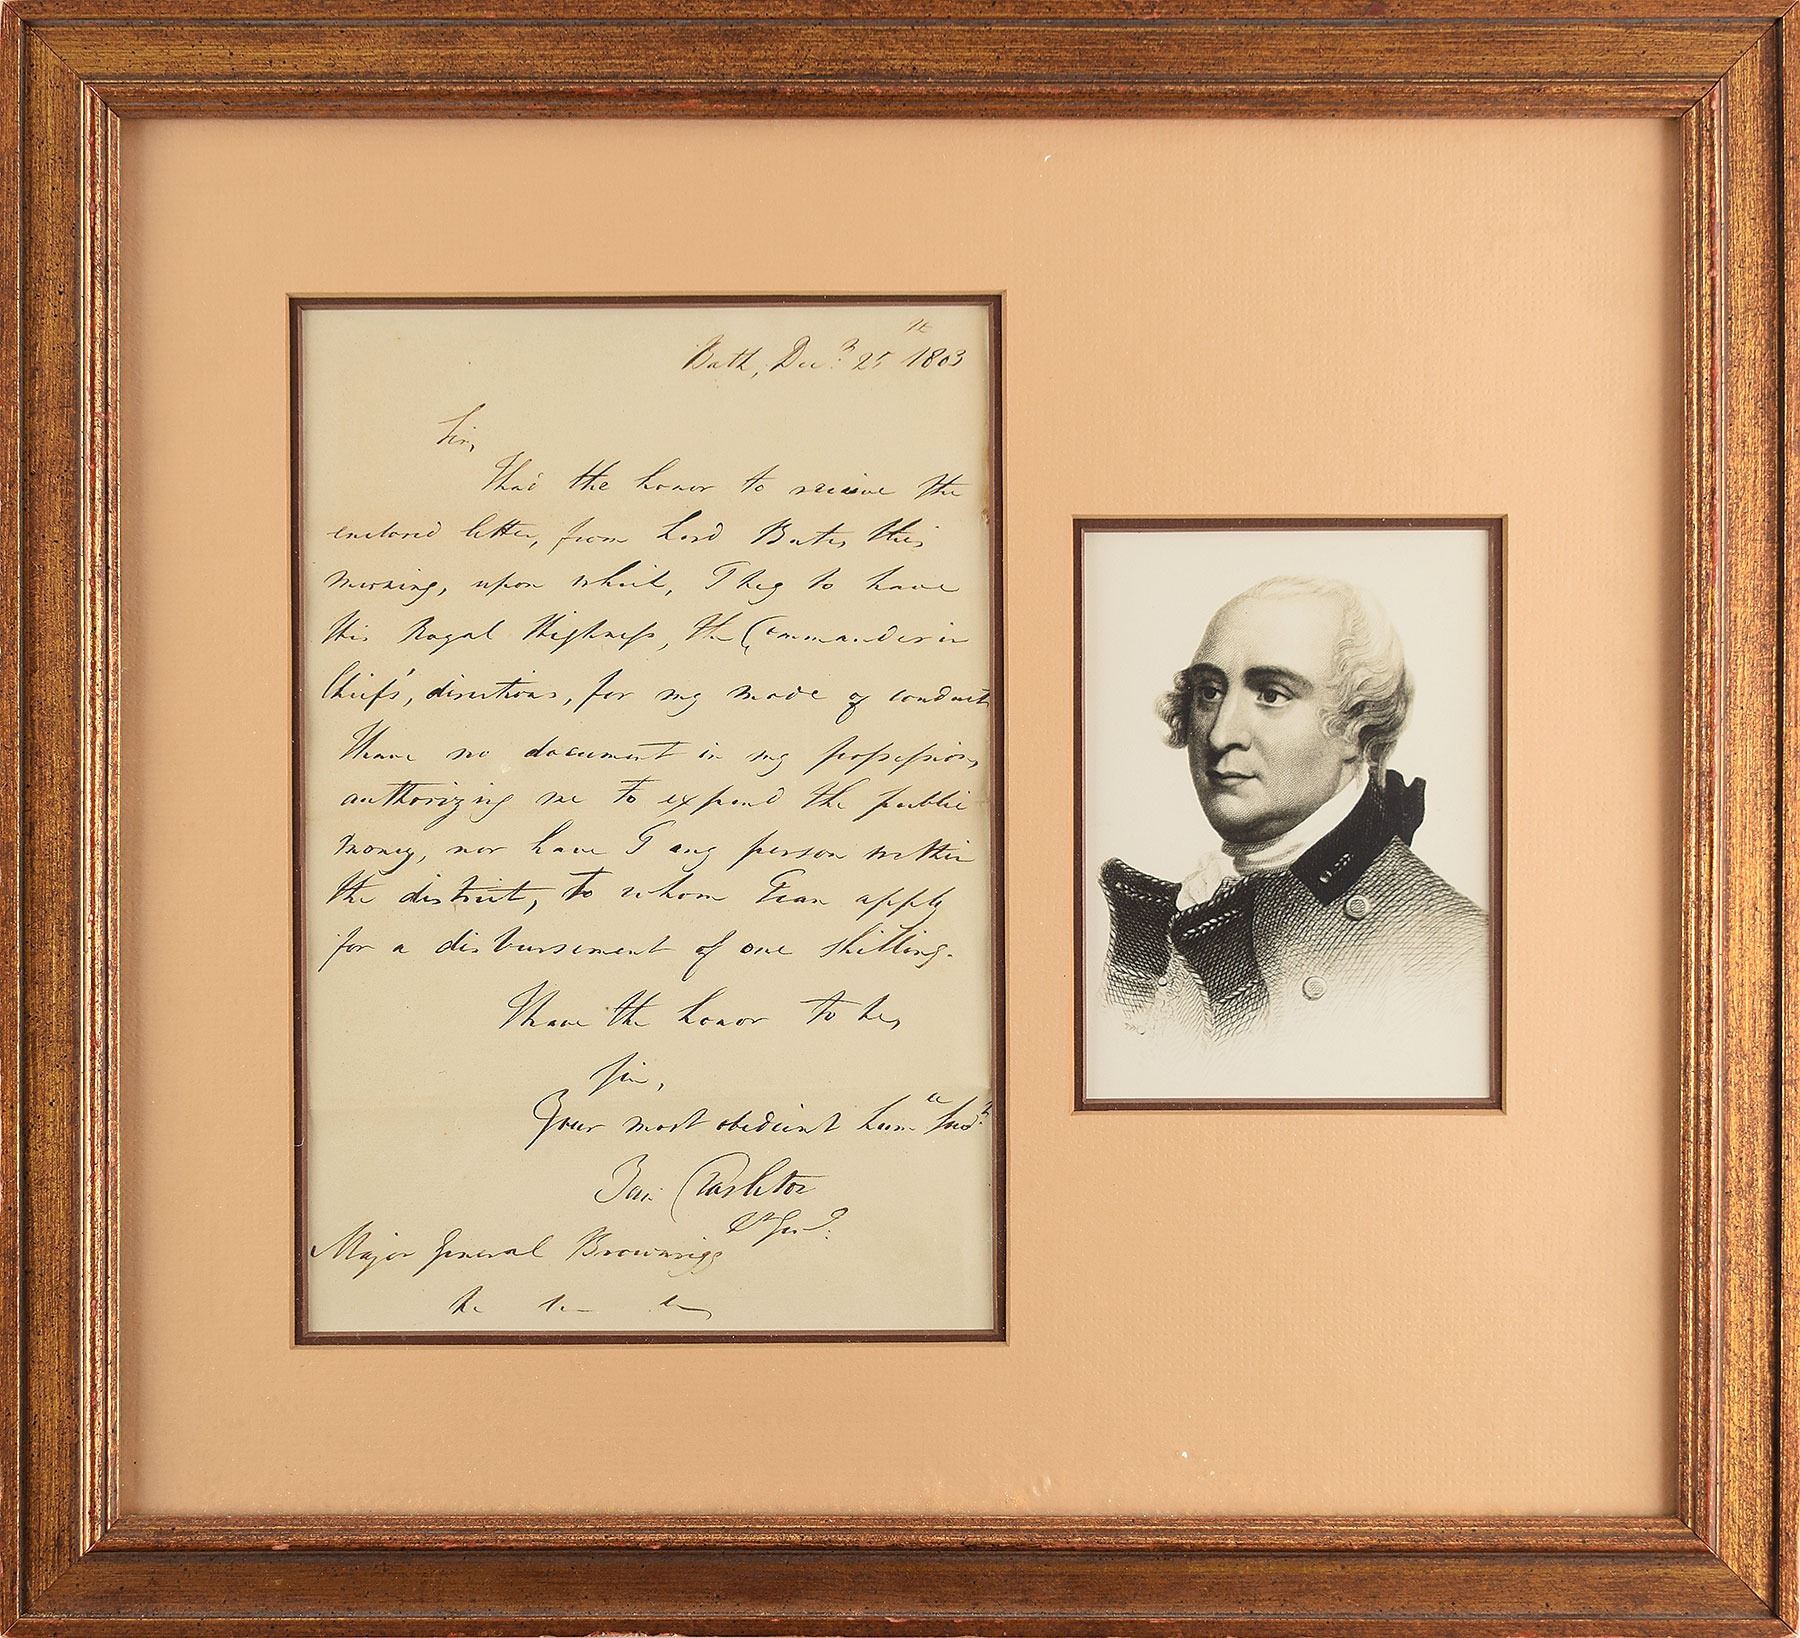 Bath, Decr. 25th 1803
Sir,
I had the honor to receive the
enclosed letter, from Lord this
morning, upon which, I beg to have
His Royal Highness, the Commander in
Chief's, directions, for my mode of conduct
I have no document in my possession,
authorizing me to expend the public
money, nor have I any person within
the district, to whom I can apply
for a disbursement of one shilling.
I have the honor to be,
Sir,
Your most obedient humle Servt.
Ban: Tarleton
Lt Genl.
Major General Brownrigg